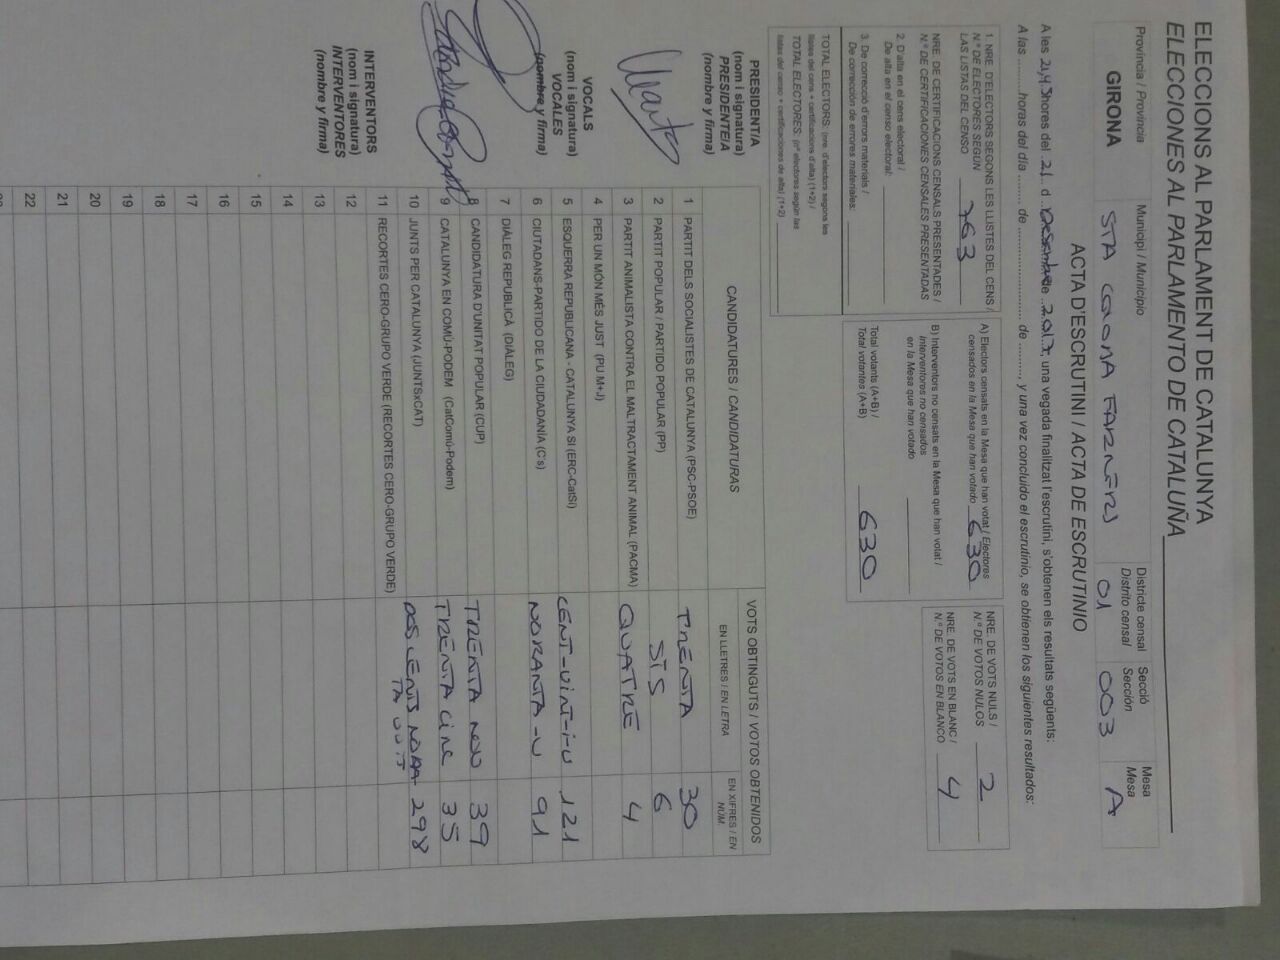 ELECCIONS AL PARLAMENT DE CATALUNYA
ELECCIONES AL PARLAMENTO DE CATALUÑA
Província / Provincia
Municipi / Municipio
Districte censal
Distrito censal
Secció
Sección
Mesa
Mesa
GIRONA
STA COLOMA FARNERS
01
003
A
ACTA D'ESCRUTINI / ACTA DE ESCRUTINIO
A les hores del 21 d desembre de 2017, una vegada finalitzat l'escrutini, s'obtenen els resultats següents:
A las ......... horas del día ........ de ........................ de ........., y una vez concluido el escrutinio, se obtienen los siguientes resultados:
1. NRE. D'ELECTORS SEGONS LES LLISTES DEL CENS /
N.º DE ELECTORES SEGÚN
LAS LISTAS DEL CENSO 763
NRE. DE CERTIFICACIONS CENSALS PRESENTADES /
N.º DE CERTIFICACIONES CENSALES PRESENTADAS
2. D'alta en el cens electoral /
De alta en el censo electoral:
3. De correcció d'errors materials /
De corrección de errores materiales:
TOTAL ELECTORS: (nre. d'electors segons les
llistes del cens + certificacions d'alta) (1+2) /
TOTAL ELECTORES: (nº electores según las
listas del censo + certificaciones de alta) (1+2)
A) Electors censats en la Mesa que han votat / Electores
censados en la Mesa que han votado 630
B) Interventors no censats en la Mesa que han votat /
Interventores no censados
en la Mesa que han votado
Total votants (A+B) /
Total votantes (A+B) 630
NRE. DE VOTS NULS /
N.º DE VOTOS NULOS 2
NRE. DE VOTS EN BLANC /
N.º DE VOTOS EN BLANCO 4
PRESIDENT/A
(nom i signatura)
PRESIDENTE/A
(nombre y firma)
VOCALS
(nom i signatura)
VOCALES
(nombre y firma)
INTERVENTORS
(nom i signatura)
INTERVENTORES
(nombre y firma)
CANDIDATURES / CANDIDATURAS
VOTS OBTINGUTS / VOTOS OBTENIDOS
EN LLETRES / EN LETRA
EN XIFRES / EN NÚM
1 PARTIT DELS SOCIALISTES DE CATALUNYA (PSC-PSOE) TRENTA 30
2 PARTIT POPULAR / PARTIDO POPULAR (PP) SIS 6
3 PARTIT ANIMALISTA CONTRA EL MALTRACTAMENT ANIMAL (PACMA) QUATRE 4
4 PER UN MÓN MÉS JUST (PU M+J)
5 ESQUERRA REPUBLICANA - CATALUNYA SI (ERC-CatSí) CENT-VINT-I-U 121
6 CIUTADANS-PARTIDO DE LA CIUDADANÍA (C's) NORANTA-U 91
7 DIÀLEG REPUBLICÀ (DIÀLEG)
8 CANDIDATURA D'UNITAT POPULAR (CUP) TRENTA NOU 39
9 CATALUNYA EN COMÚ-PODEM (CatComú-Podem) TRENTA CINC 35
10 JUNTS PER CATALUNYA (JUNTSxCAT) DOS CENTS NORAN 298
TA VUIT
11 RECORTES CERO-GRUPO VERDE (RECORTES CERO-GRUPO VERDE)
12
13
14
15
16
17
18
19
20
21
22